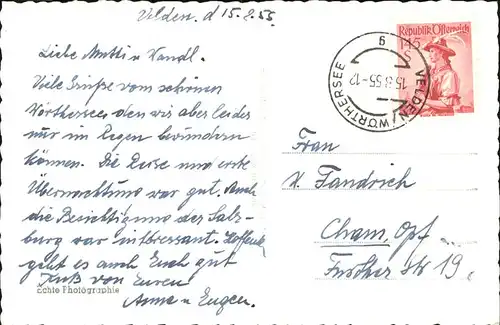 Velden, d 15.8.55.
Liebe Mutti u Wandl.
Viele Grüße vom schönen
Wörthersee, den wir aber leider
nur im Regen bewundern
können. Die Reise und erste
Übernachtung war gut. Auch
die Besichtigung der Salz-
burg war interessant. Hoffentl.
geht es auch Euch gut
Kuß von Euren
Anna u Eugen.
Echte Photographie
Republik Österreich
1.45
S
VELDEN/WÖRTHERSEE
15.8.55-12
Frau
Fandrich
Cham, Opf
Fischer Str 19,